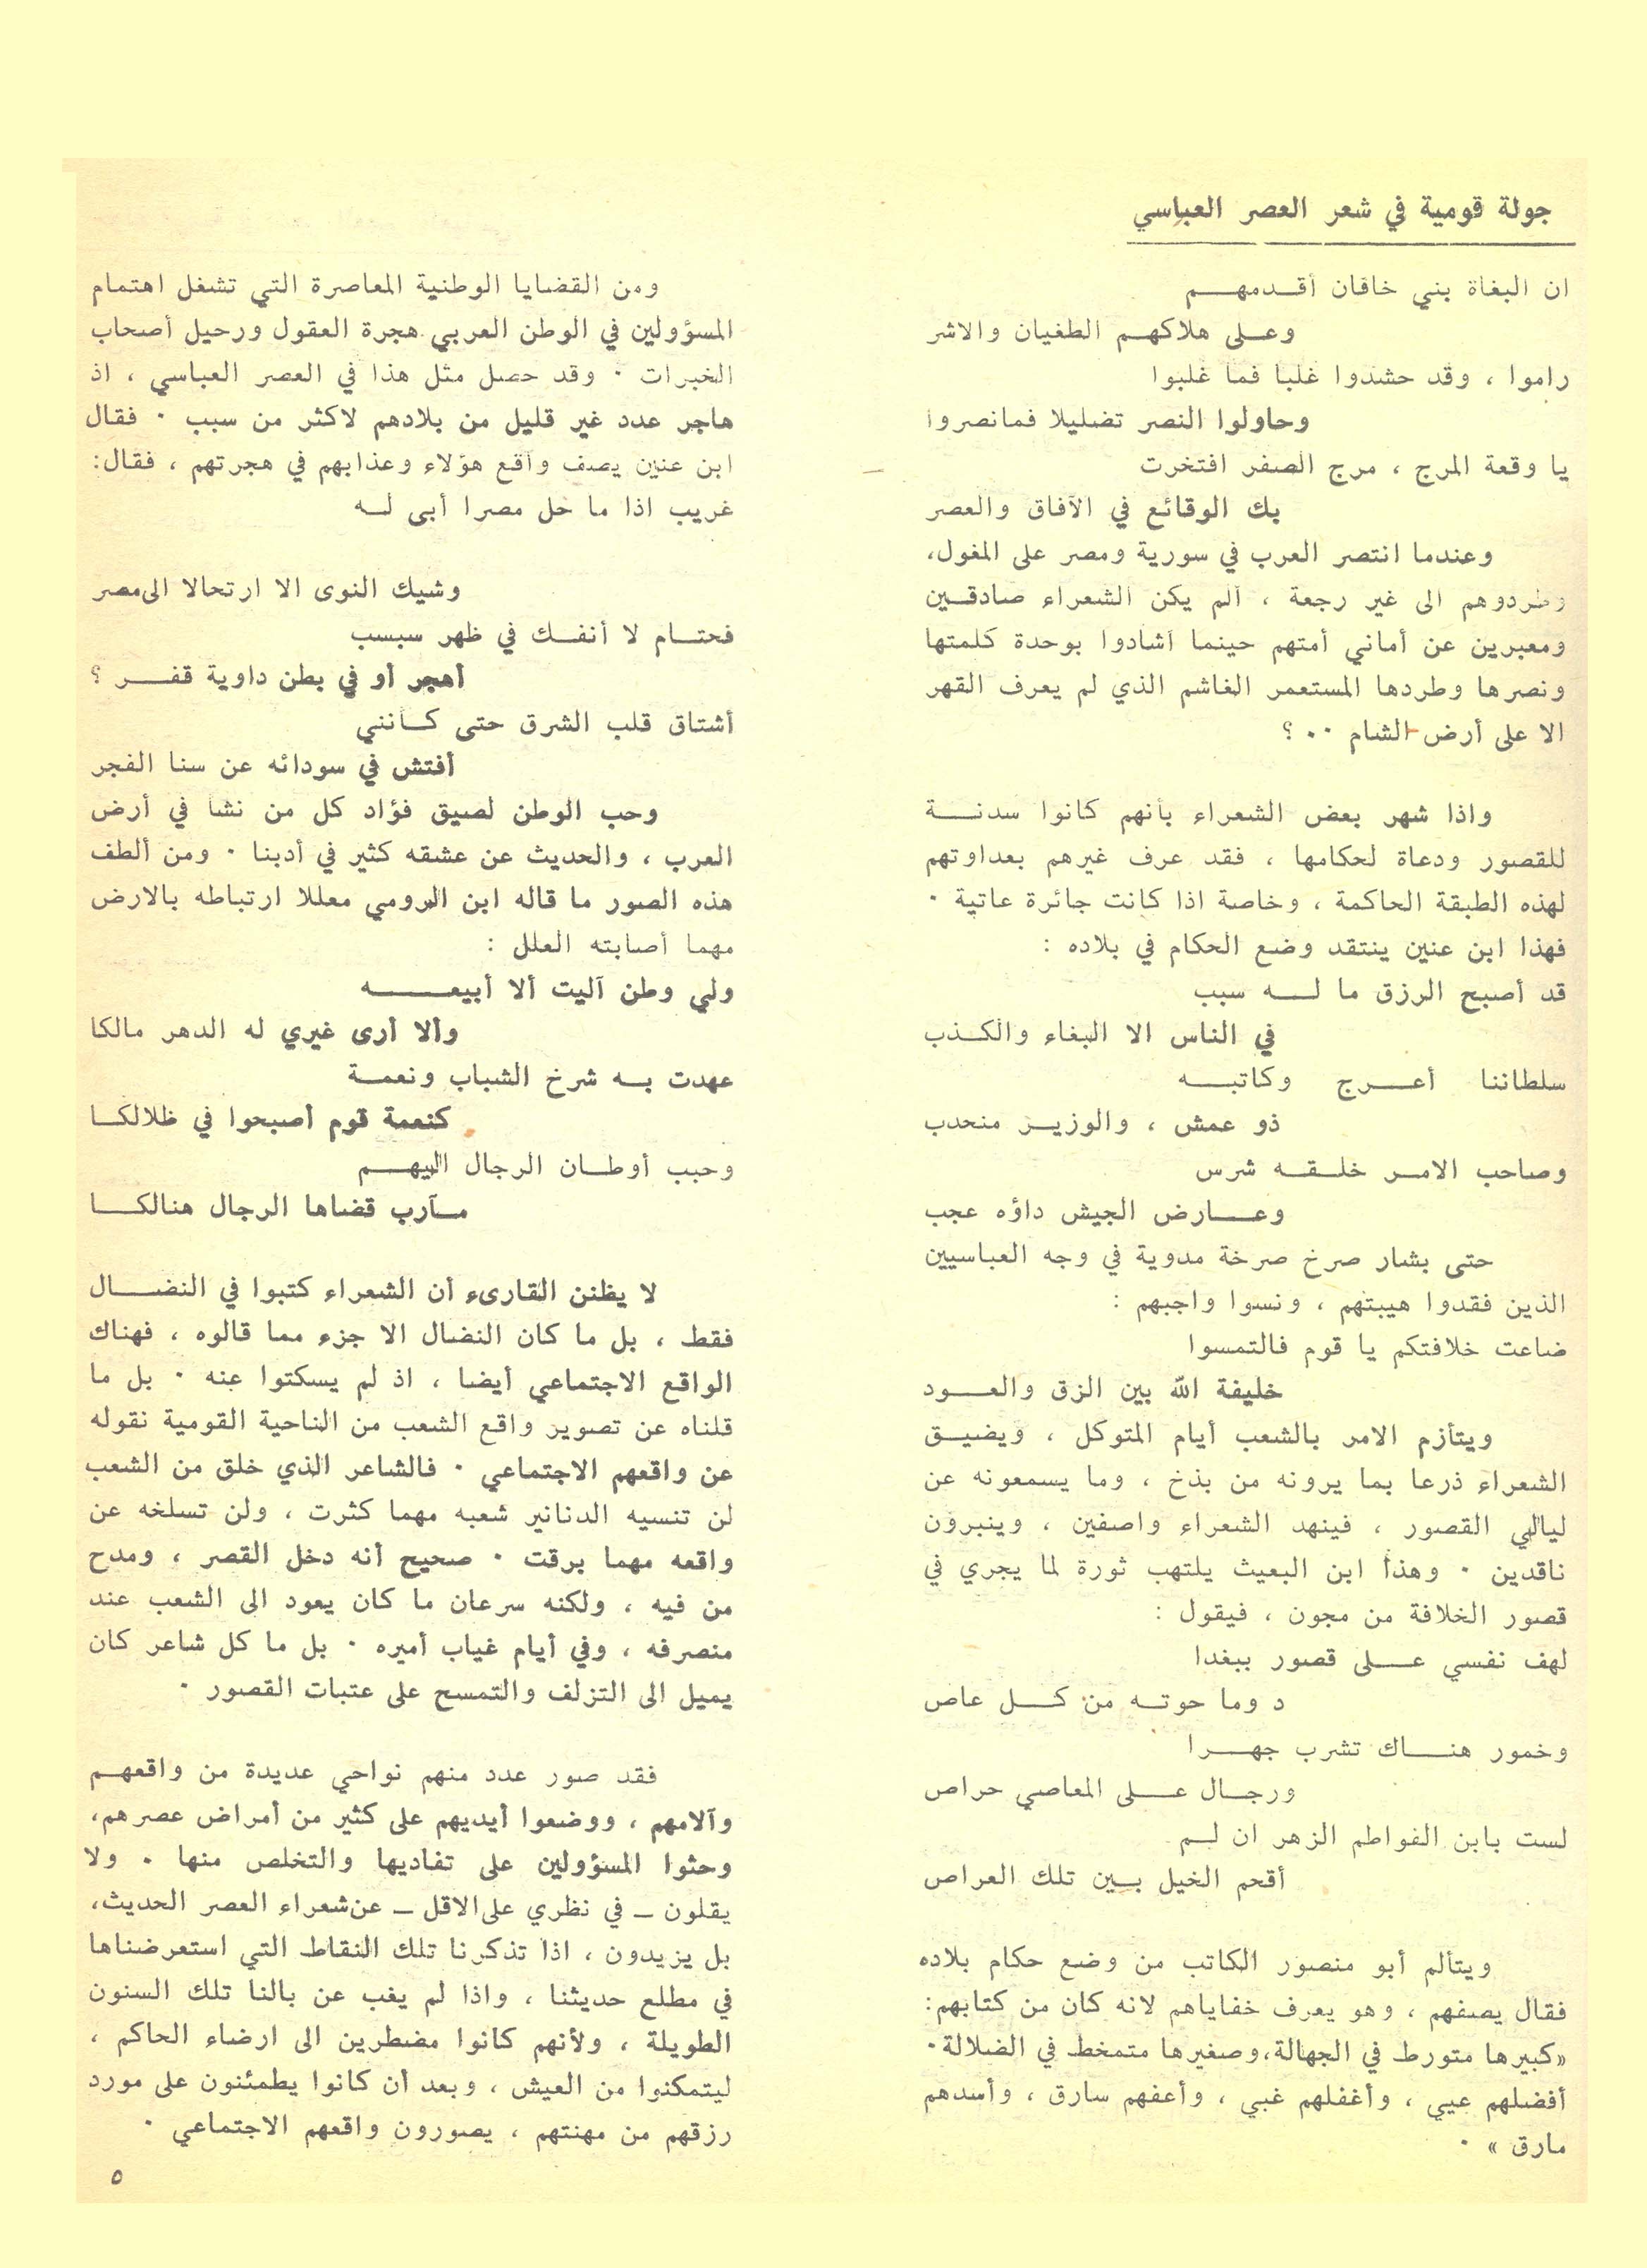 جولة قومية في شعر العصر العباسي
ان البغاة بني خاقان أقـدمهـــم
وعـلى هلاكهـم الطغيان والاشر
راموا ، وقد حشدوا غلبا فما غلبوا
وحاولوا النصر تضليلا فمانصروا
يا وقعة المرج ، مرج الصفر افتخرت
بك الوقائع في الآفاق والعصر
وعندما انتصر العرب في سورية ومصر على المغول،
وطردوهم الى غير رجعة ، ألم يكن الشعراء صادقـين
ومعبرين عن أماني أمتهم حينما أشادوا بوحدة كلمتها
ونصرها وطردها المستعمر الغاشم الذي لم يعرف القهر
الا على أرض الشام ٠٠ ؟
واذا شهر بعض الشعراء بأنهم كانوا سدنـــة
للقصور ودعاة لحكامها ، فقد عرف غيرهم بعداوتهم
لهذه الطبقة الحاكمة ، وخاصة اذا كانت جائرة عاتية ٠
فهذا ابن عنين ينتقد وضع الحكام في بلاده :
قد أصبح الرزق ما لـــه سبب
في الناس الا البغاء والكـذب
سلطاننا أعـــرج وكاتبــه
ذو عمش ، والوزيـر منحدب
وصاحب الامـر خلـقـه شرس
وعـــارض الجيش داؤه عجب
حتى بشار صرخ صرخة مدوية في وجه العباسيين
الذين فقدوا هيبتهم ، ونسوا واجبهم :
ضاعت خلافتكم يا قوم فالتمسوا
خليفة الله بين الزق والعـــود
ويتأزم الامر بالشعب أيام المتوكل ، ويضيـق
الشعراء ذرعا بما يرونه من بذخ ، وما يسمعونه عن
ليالي القصور ، فينهد الشعراء واصفين ، وينبرون
ناقدين ٠ وهذا ابن البعيث يلتهب ثورة لما يجري في
قصور الخلافة من مجون ، فيقول :
لهف نفسي عـــلى قصور ببغدا
د وما حوتـه من كـــل عاص
وخمور هنـــاك تشرب جهـــرا
ورجـال عـــلى المعاصي حراص
لست بابن الفواطم الزهر ان لـم
أقحم الخيل بـين تلك العراص
ويتألم أبو منصور الكاتب من وضع حكام بلاده
فقال يصفهم ، وهو يعرف خفاياهم لانه كان من كتابهم:
«كبيرها متورط في الجهالة،وصغيرها متمخط في الضلالة٠
أفضلهم عيي ، وأغفلهم غبي ، وأعفهم سارق ، وأسدهم
مارق » ٠
ومن القضايا الوطنية المعاصرة التي تشغل اهتمام
المسؤولين في الوطن العربي هجرة العقول ورحيل أصحاب
الخبرات ٠ وقد حصل مثل هذا في العصر العباسي ، اذ
هاجر عدد غير قليل من بلادهم لاكثر من سبب ٠ فقال
ابن عنين يصف واقع هؤلاء وعذابهم في هجرتهم ، فقال:
غريب اذا ما حل مصرا أبى لـــه
وشيك النوى الا ارتحالا الى مصر
فحتـــام لا أنفـــك في ظهر سبسب
أهجر أو في بطن داوية قفـــر ؟
أشتاق قلب الشرق حتى كـأنني
أفتش في سودائه عن سنا الفجر
وحب الوطن لصيق فؤاد كل من نشأ في أرض
العرب ، والحديث عن عشقه كثير في أدبنا ٠ ومن ألطف
هذه الصور ما قاله ابن الرومي معللا ارتباطه بالارض
مهما أصابته العلل :
ولي وطن آليت ألا أبيعـــه
وألا أرى غيري له الدهر مالكا
عهدت بـه شرخ الشباب ونعمـة
كنعمة قوم أصبحوا في ظلالكـا
وحبب أوطـان الرجال اليهـــم
مـآرب قضاها الرجال هنالكـــا
لا يظنن القارىء أن الشعراء كتبوا في النضـــال
فقط ، بل ما كان النضال الا جزء مما قالوه ، فهناك
الواقع الاجتماعي أيضا ، اذ لم يسكتوا عنه ٠ بل ما
قلناه عن تصوير واقع الشعب من الناحية القومية نقوله
عن واقعهم الاجتماعي ٠ فالشاعر الذي خلق من الشعب
لن تنسيه الدنانير شعبه مهما كثرت ، ولن تسلخه عن
واقعه مهما برقت ٠ صحيح أنه دخل القصر ، ومدح
من فيه ، ولكنه سرعان ما كان يعود الى الشعب عند
منصرفه ، وفي أيام غياب أميره ٠ بل ما كل شاعر كان
يميل الى التزلف والتمسح على عتبات القصور ٠
فقد صور عدد منهم نواحي عديدة من واقعهـم
وآلامهم ، ووضعوا أيديهم على كثير من أمراض عصرهم،
وحثوا المسؤولين على تفاديها والتخلص منها ٠ ولا
يقلون ــ في نظري على الاقل ــ عن شعراء العصر الحديث،
بل يزيدون ، اذا تذكرنا تلك النقاط التي استعرضناها
في مطلع حديثنا ، واذا لم يغب عن بالنا تلك السنون
الطويلة ، ولأنهم كانوا مضطرين الى ارضاء الحاكم ،
ليتمكنوا من العيش ، وبعد أن كانوا يطمئنون على مورد
رزقهم من مهنتهم ، يصورون واقعهم الاجتماعي ٠
٥